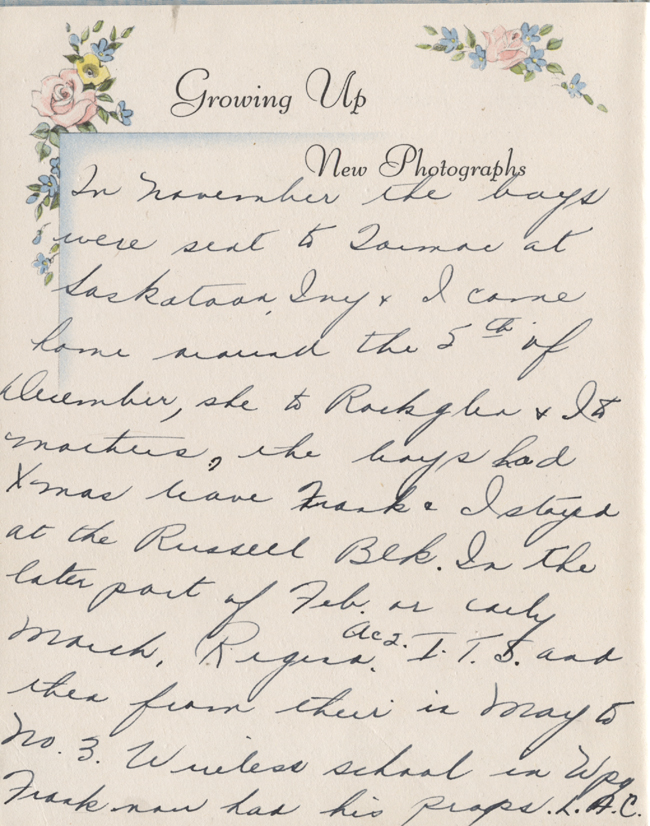 Growing Up
New Photographs
In November the boys
were sent to at
Saskatoon, Ivy & I came
home around the 5th of
December, she to Rockglen & I to
mothers, the boys had
Xmas leave Frank & I stayed
at the Russell Blk. In the
later part of Feb. or early
March, Regina, AC2. I.T.S. and
then from their in May to
No. 3. Wireless school in Wpg
Frank now had his props. L.A.C.